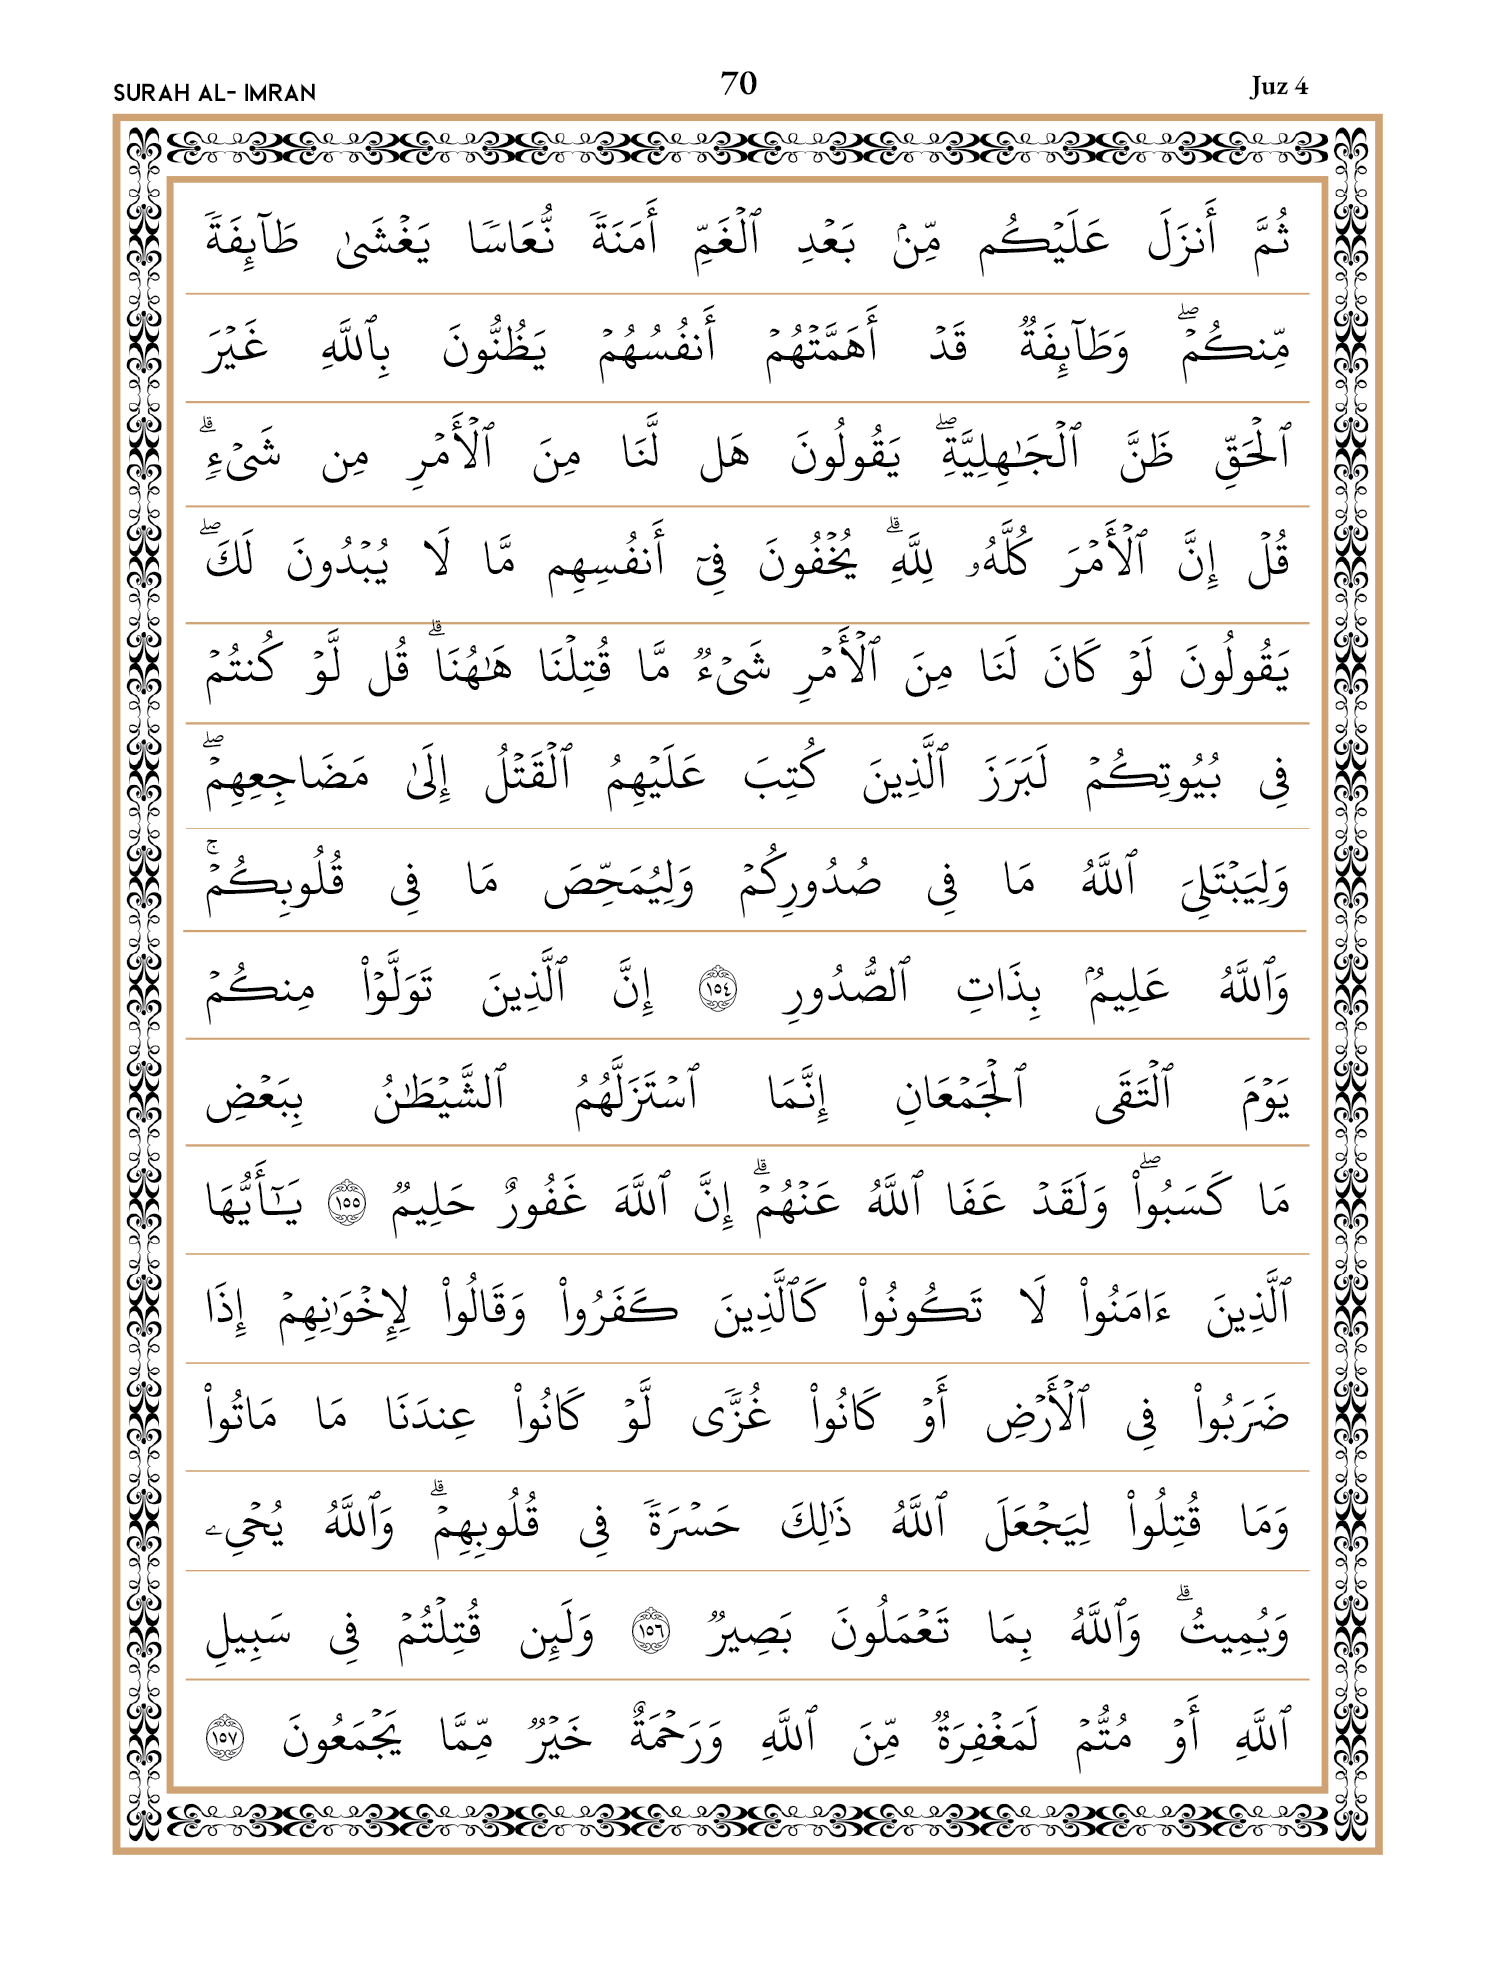 SURAH AL- IMRAN 70 Juz 4
ثُمَّ أَنزَلَ عَلَيۡكُم مِّنۢ بَعۡدِ ٱلۡغَمِّ أَمَنَةٗ نُّعَاسٗا يَغۡشَىٰ طَآئِفَةٗ
مِّنكُمۡۖ وَطَآئِفَةٞ قَدۡ أَهَمَّتۡهُمۡ أَنفُسُهُمۡ يَظُنُّونَ بِٱللَّهِ غَيۡرَ
ٱلۡحَقِّ ظَنَّ ٱلۡجَٰهِلِيَّةِۖ يَقُولُونَ هَل لَّنَا مِنَ ٱلۡأَمۡرِ مِن شَيۡءٖۗ
قُلۡ إِنَّ ٱلۡأَمۡرَ كُلَّهُۥ لِلَّهِۗ يُخۡفُونَ فِيٓ أَنفُسِهِم مَّا لَا يُبۡدُونَ لَكَۖ
يَقُولُونَ لَوۡ كَانَ لَنَا مِنَ ٱلۡأَمۡرِ شَيۡءٞ مَّا قُتِلۡنَا هَٰهُنَاۗ قُل لَّوۡ كُنتُمۡ
فِي بُيُوتِكُمۡ لَبَرَزَ ٱلَّذِينَ كُتِبَ عَلَيۡهِمُ ٱلۡقَتۡلُ إِلَىٰ مَضَاجِعِهِمۡۖ
وَلِيَبۡتَلِيَ ٱللَّهُ مَا فِي صُدُورِكُمۡ وَلِيُمَحِّصَ مَا فِي قُلُوبِكُمۡۚ
وَٱللَّهُ عَلِيمُۢ بِذَاتِ ٱلصُّدُورِ ١٥٤ إِنَّ ٱلَّذِينَ تَوَلَّوۡاْ مِنكُمۡ
يَوۡمَ ٱلۡتَقَى ٱلۡجَمۡعَانِ إِنَّمَا ٱسۡتَزَلَّهُمُ ٱلشَّيۡطَٰنُ بِبَعۡضِ
مَا كَسَبُواْۖ وَلَقَدۡ عَفَا ٱللَّهُ عَنۡهُمۡۗ إِنَّ ٱللَّهَ غَفُورٌ حَلِيمٞ ١٥٥ يَٰٓأَيُّهَا
ٱلَّذِينَ ءَامَنُواْ لَا تَكُونُواْ كَٱلَّذِينَ كَفَرُواْ وَقَالُواْ لِإِخۡوَٰنِهِمۡ إِذَا
ضَرَبُواْ فِي ٱلۡأَرۡضِ أَوۡ كَانُواْ غُزّٗى لَّوۡ كَانُواْ عِندَنَا مَا مَاتُواْ
وَمَا قُتِلُواْ لِيَجۡعَلَ ٱللَّهُ ذَٰلِكَ حَسۡرَةٗ فِي قُلُوبِهِمۡۗ وَٱللَّهُ يُحۡيِۦ
وَيُمِيتُۗ وَٱللَّهُ بِمَا تَعۡمَلُونَ بَصِيرٞ ١٥٦ وَلَئِن قُتِلۡتُمۡ فِي سَبِيلِ
ٱللَّهِ أَوۡ مُتُّمۡ لَمَغۡفِرَةٞ مِّنَ ٱللَّهِ وَرَحۡمَةٌ خَيۡرٞ مِّمَّا يَجۡمَعُونَ ١٥٧